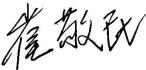 崔敬民